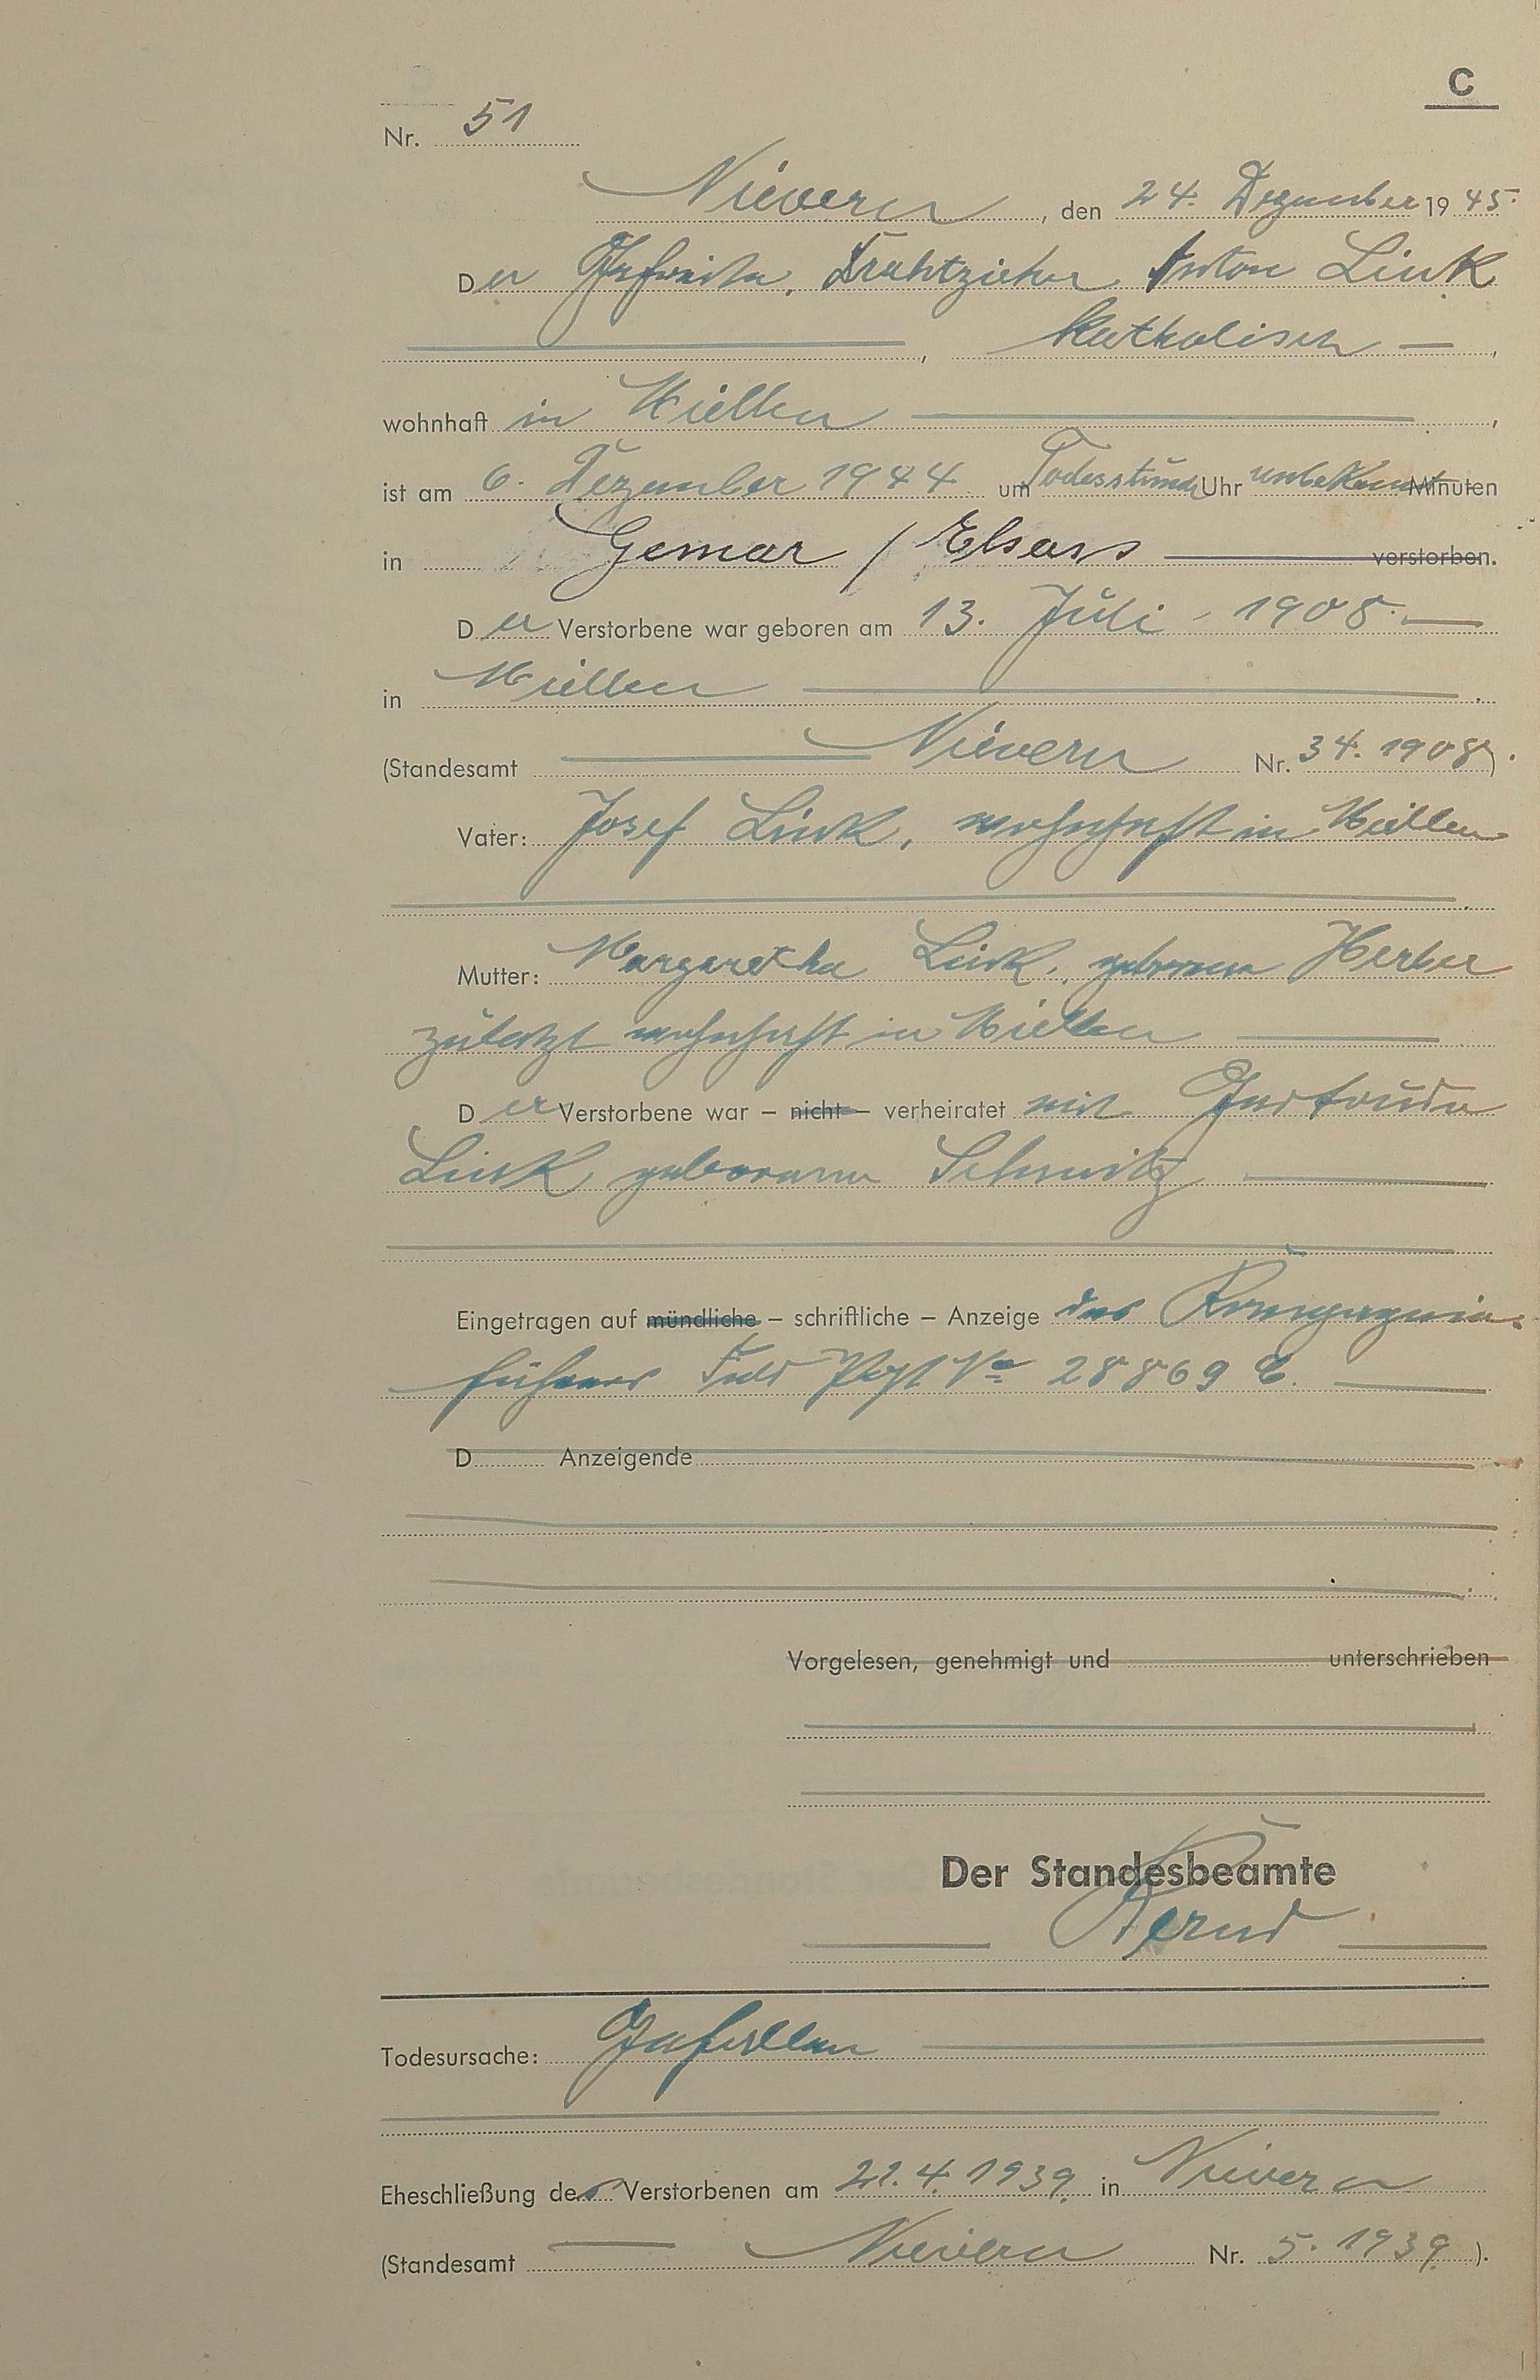 C
Nr. 51
Nievern, den 24. Dezember 1945.
Der Gefreite, Drahtzieher Anton Link
, katholisch —,
wohnhaft in Miellen,
ist am 6. Dezember 1944 um Todesstunde Uhr unbekannt Minuten
in Gemar / Elsass verstorben.
Der Verstorbene war geboren am 13. Juli 1908.
in Miellen.
(Standesamt Nievern Nr. 34. 1908).
Vater: Josef Link, wohnhaft in Miellen
Mutter: Margaretha Link, geborene Herber
zuletzt wohnhaft in Miellen
Der Verstorbene war – nicht – verheiratet mit Gertrude
Link geborene Schmitz
Eingetragen auf mündliche – schriftliche – Anzeige des Kompagnie-
führers Feld Post No 28869 C.
D Anzeigende
Vorgelesen, genehmigt und unterschrieben
Der Standesbeamte
Todesursache: Gefallen
Eheschließung des Verstorbenen am 22.4.1939. in Nievern
(Standesamt Nievern Nr. 5. 1939.).